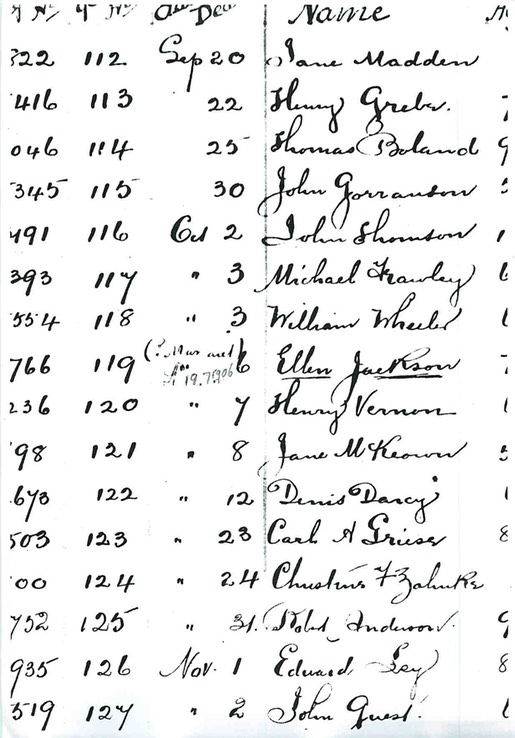 Name
322 112 Sep 20 Jane Madden
416 113 22 Henry Greber.
046 114 25 Thomas Boland 9
345 115 30 John Gorranson
491 116 Oct 2 John Thomson
393 117 " 3 Michael Frawley 6
554 118 " 3 William Wheeler
766 119 6 Ellen Jackson
19.7.1906
236 120 " 7 Henry Vernon
98 121 " 8 Jane McKeown
673 122 " 12 Denis Darcy
503 123 " 23 Carl A Grieser 8
00 124 " 24 F Zahnke
752 125 " 31. Robt Anderson. 9
935 126 Nov. 1 Edward Ley 8
519 127 " 2 John Guest.